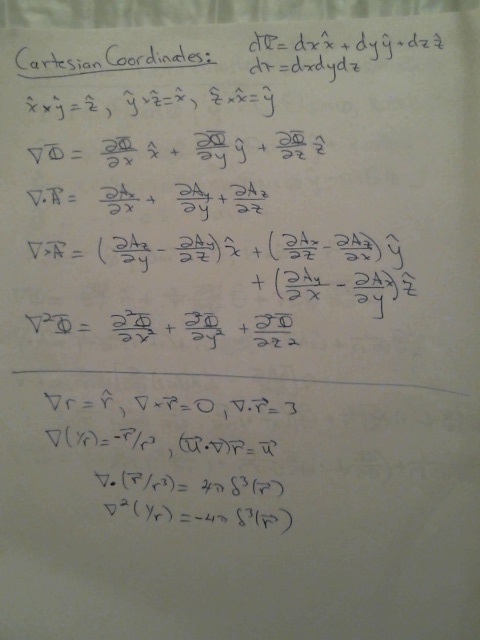 Cartesian Coordinates: dl⃗ = dx x̂ + dy ŷ + dz ẑ
dτ = dxdydz
x̂ × ŷ = ẑ , ŷ × ẑ = x̂ , ẑ × x̂ = ŷ
∇Φ = ∂Φ/∂x x̂ + ∂Φ/∂y ŷ + ∂Φ/∂z ẑ
∇·A⃗ = ∂Ax/∂x + ∂Ay/∂y + ∂Az/∂z
∇×A⃗ = (∂Az/∂y − ∂Ay/∂z) x̂ + (∂Ax/∂z − ∂Az/∂x) ŷ
+ (∂Ay/∂x − ∂Ax/∂y) ẑ
∇²Φ = ∂²Φ/∂x² + ∂²Φ/∂y² + ∂²Φ/∂z²
∇r = r̂ , ∇×r⃗ = 0 , ∇·r⃗ = 3
∇(1/r) = −r⃗/r³ , (u⃗·∇)r⃗ = u⃗
∇·(r⃗/r³) = 4π δ³(r⃗)
∇²(1/r) = −4π δ³(r⃗)